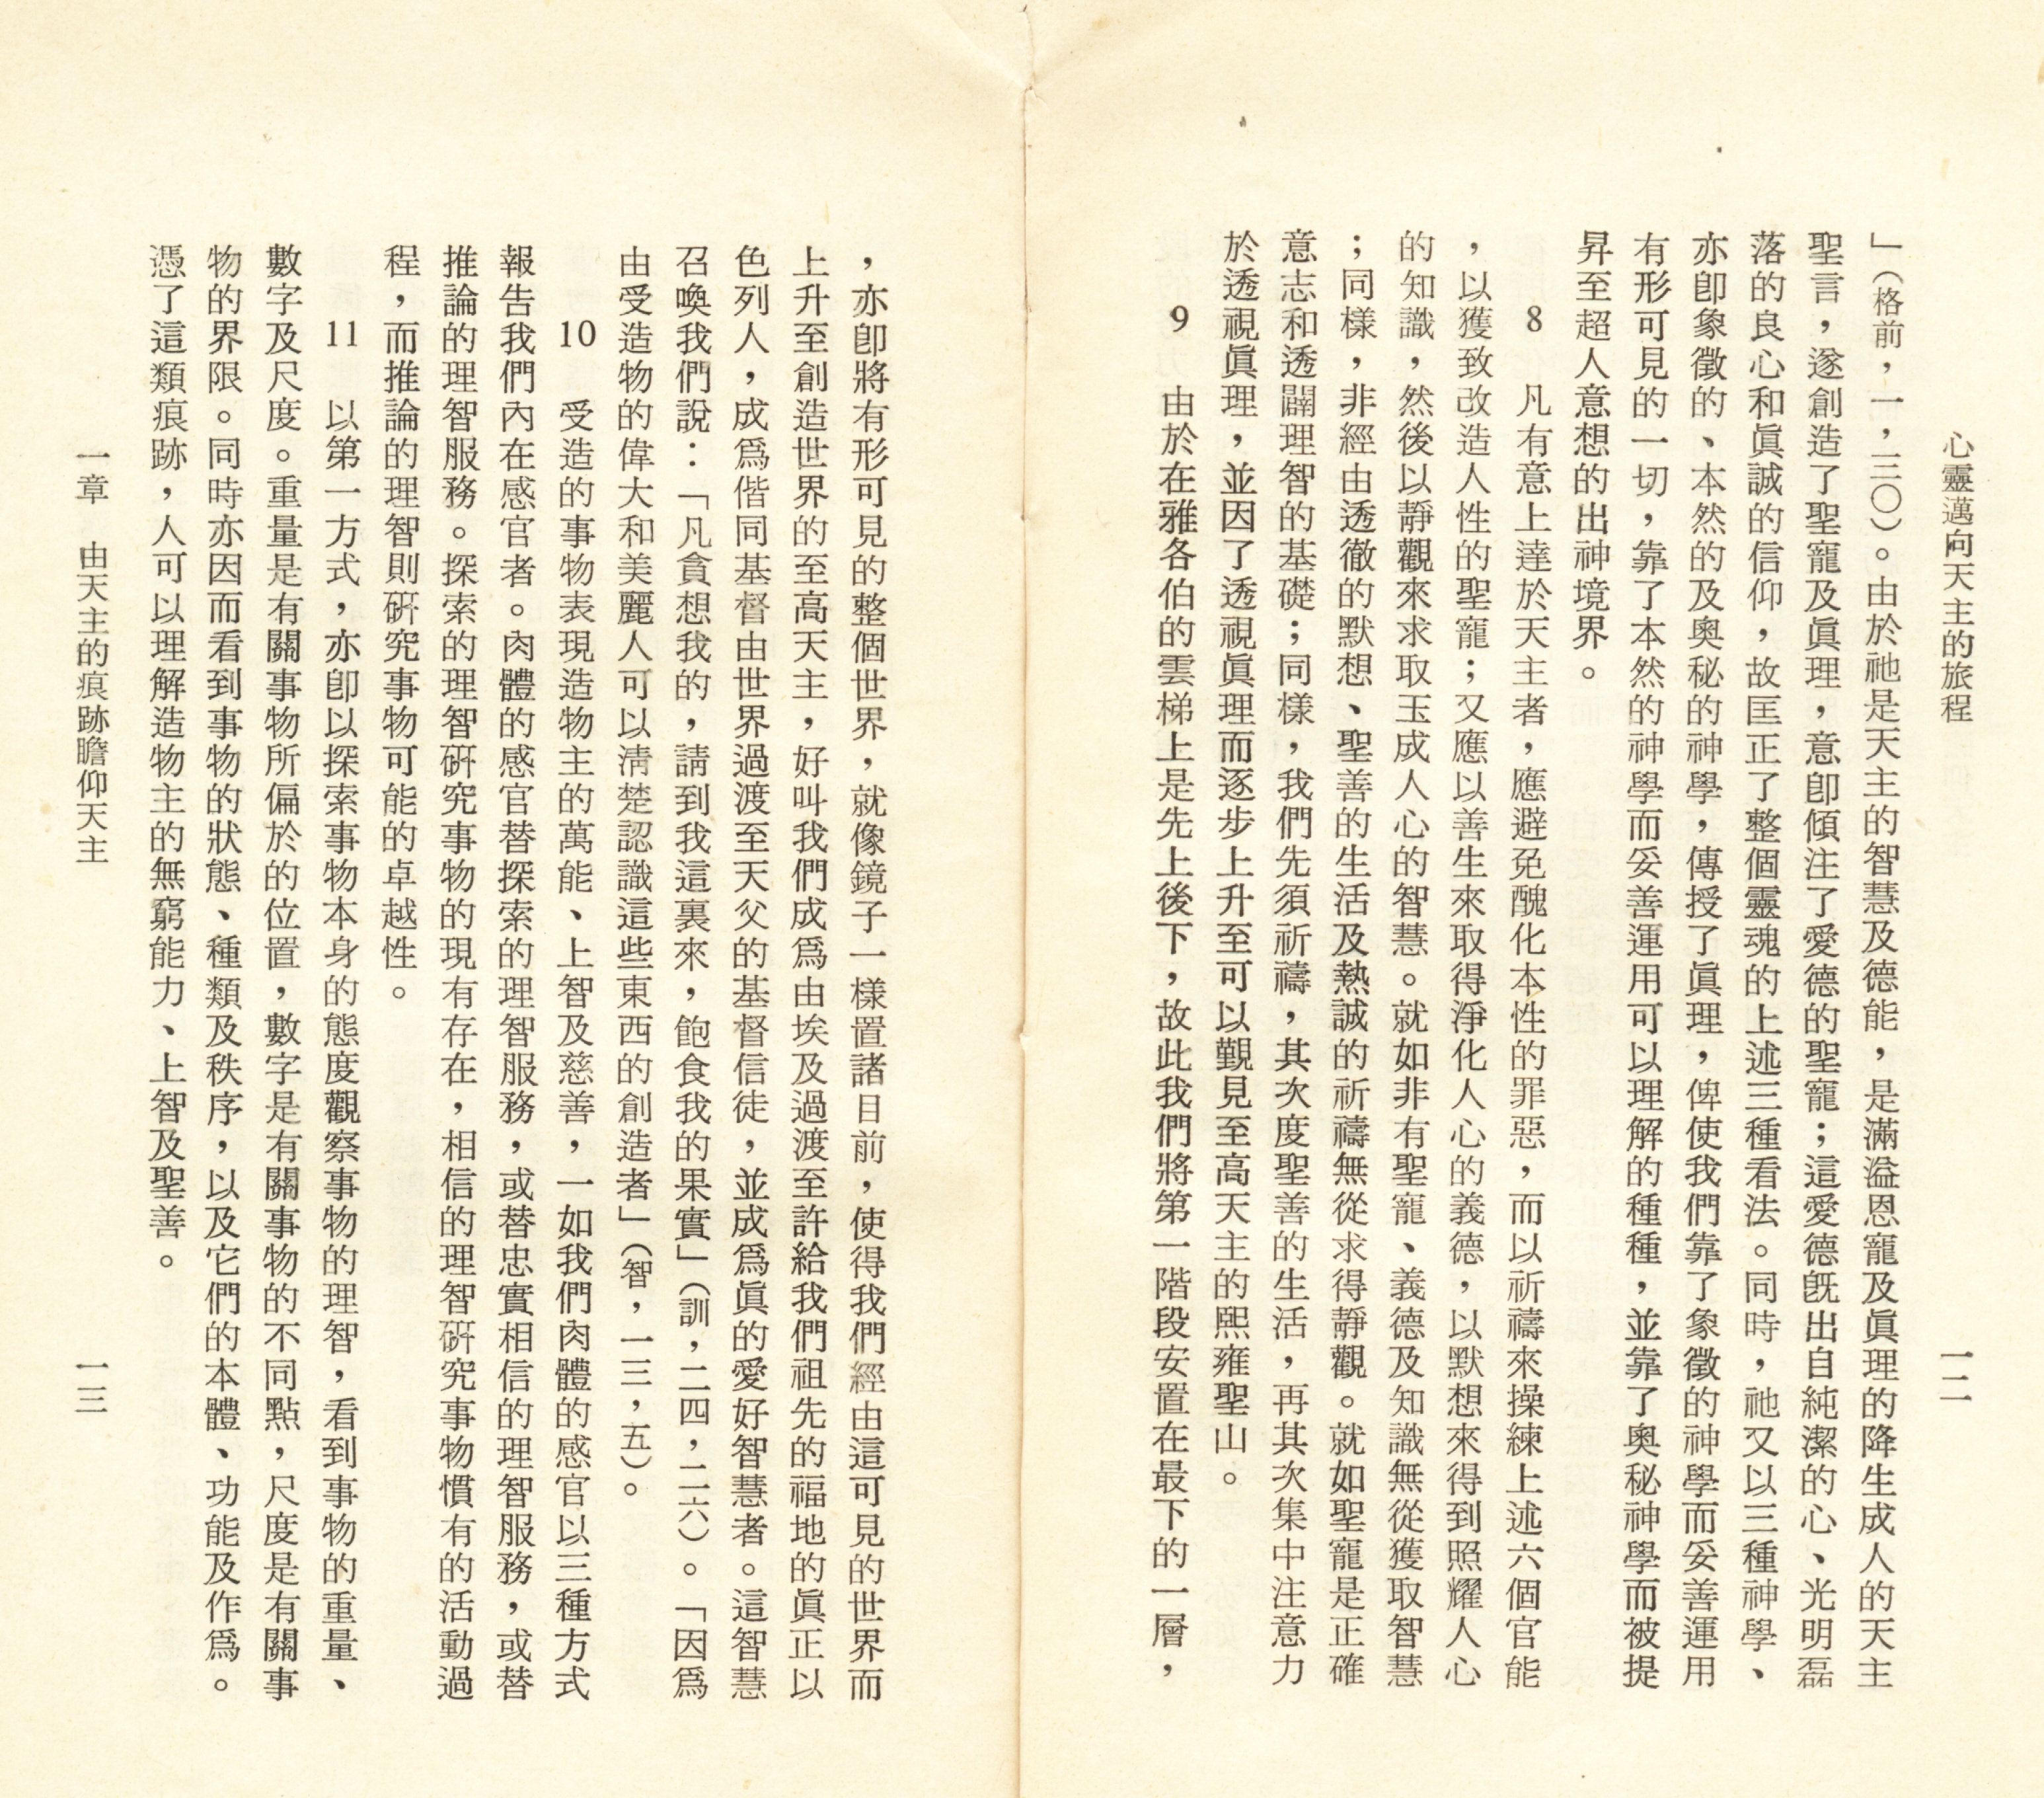 心靈邁向天主的旅程
一二
」（格前，一，三〇）。由於祂是天主的智慧及德能，是滿溢恩寵及眞理的降生成人的天主
聖言，遂創造了聖寵及眞理，意卽傾注了愛德的聖寵；這愛德旣出自純潔的心、光明磊
落的良心和眞誠的信仰，故匡正了整個靈魂的上述三種看法。同時，祂又以三種神學、
亦卽象徵的、本然的及奧秘的神學，傳授了眞理，俾使我們靠了象徵的神學而妥善運用
有形可見的一切，靠了本然的神學而妥善運用可以理解的種種，並靠了奧秘神學而被提
昇至超人意想的出神境界。
8　凡有意上達於天主者，應避免醜化本性的罪惡，而以祈禱來操練上述六個官能
，以獲致改造人性的聖寵；又應以善生來取得淨化人心的義德，以默想來得到照耀人心
的知識，然後以靜觀來求取玉成人心的智慧。就如非有聖寵、義德及知識無從獲取智慧
；同樣，非經由透徹的默想、聖善的生活及熱誠的祈禱無從求得靜觀。就如聖寵是正確
意志和透闢理智的基礎；同樣，我們先須祈禱，其次度聖善的生活，再其次集中注意力
於透視眞理，並因了透視眞理而逐步上升至可以覲見至高天主的熙雍聖山。
9　由於在雅各伯的雲梯上是先上後下，故此我們將第一階段安置在最下的一層，
，亦卽將有形可見的整個世界，就像鏡子一樣置諸目前，使得我們經由這可見的世界而
上升至創造世界的至高天主，好叫我們成爲由埃及過渡至許給我們祖先的福地的眞正以
色列人，成爲偕同基督由世界過渡至天父的基督信徒，並成爲眞的愛好智慧者。這智慧
召喚我們說：「凡貪想我的，請到我這裏來，飽食我的果實」（訓，二四，二六）。「因爲
由受造物的偉大和美麗人可以淸楚認識這些東西的創造者」（智，一三，五）。
10　受造的事物表現造物主的萬能、上智及慈善，一如我們肉體的感官以三種方式
報告我們內在感官者。肉體的感官替探索的理智服務，或替忠實相信的理智服務，或替
推論的理智服務。探索的理智硏究事物的現有存在，相信的理智硏究事物慣有的活動過
程，而推論的理智則硏究事物可能的卓越性。
11　以第一方式，亦卽以探索事物本身的態度觀察事物的理智，看到事物的重量、
數字及尺度。重量是有關事物所偏於的位置，數字是有關事物的不同點，尺度是有關事
物的界限。同時亦因而看到事物的狀態、種類及秩序，以及它們的本體、功能及作爲。
憑了這類痕跡，人可以理解造物主的無窮能力、上智及聖善。
一章　由天主的痕跡瞻仰天主
一三